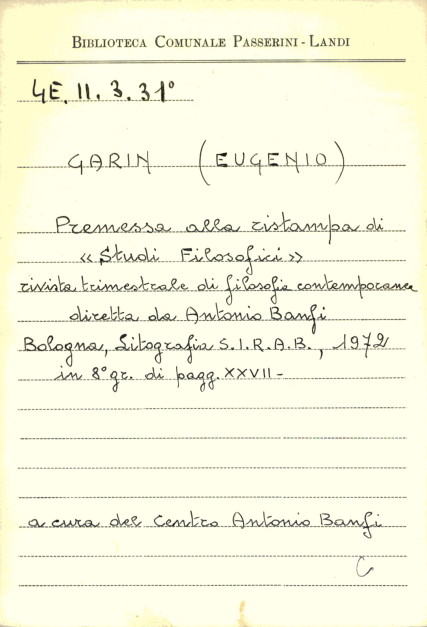 BIBLIOTECA COMUNALE PASSERINI - LANDI
4E. II. 3. 31°
GARIN (EUGENIO)
Premessa alla ristampa di
« Studi Filosofici »
rivista trimestrale di filosofia contemporanea
diretta da Antonio Banfi
Bologna, Litografia S.I.R.A.B., 1972
in 8° gr. di pagg. XXVII -
a cura del Centro Antonio Banfi
C